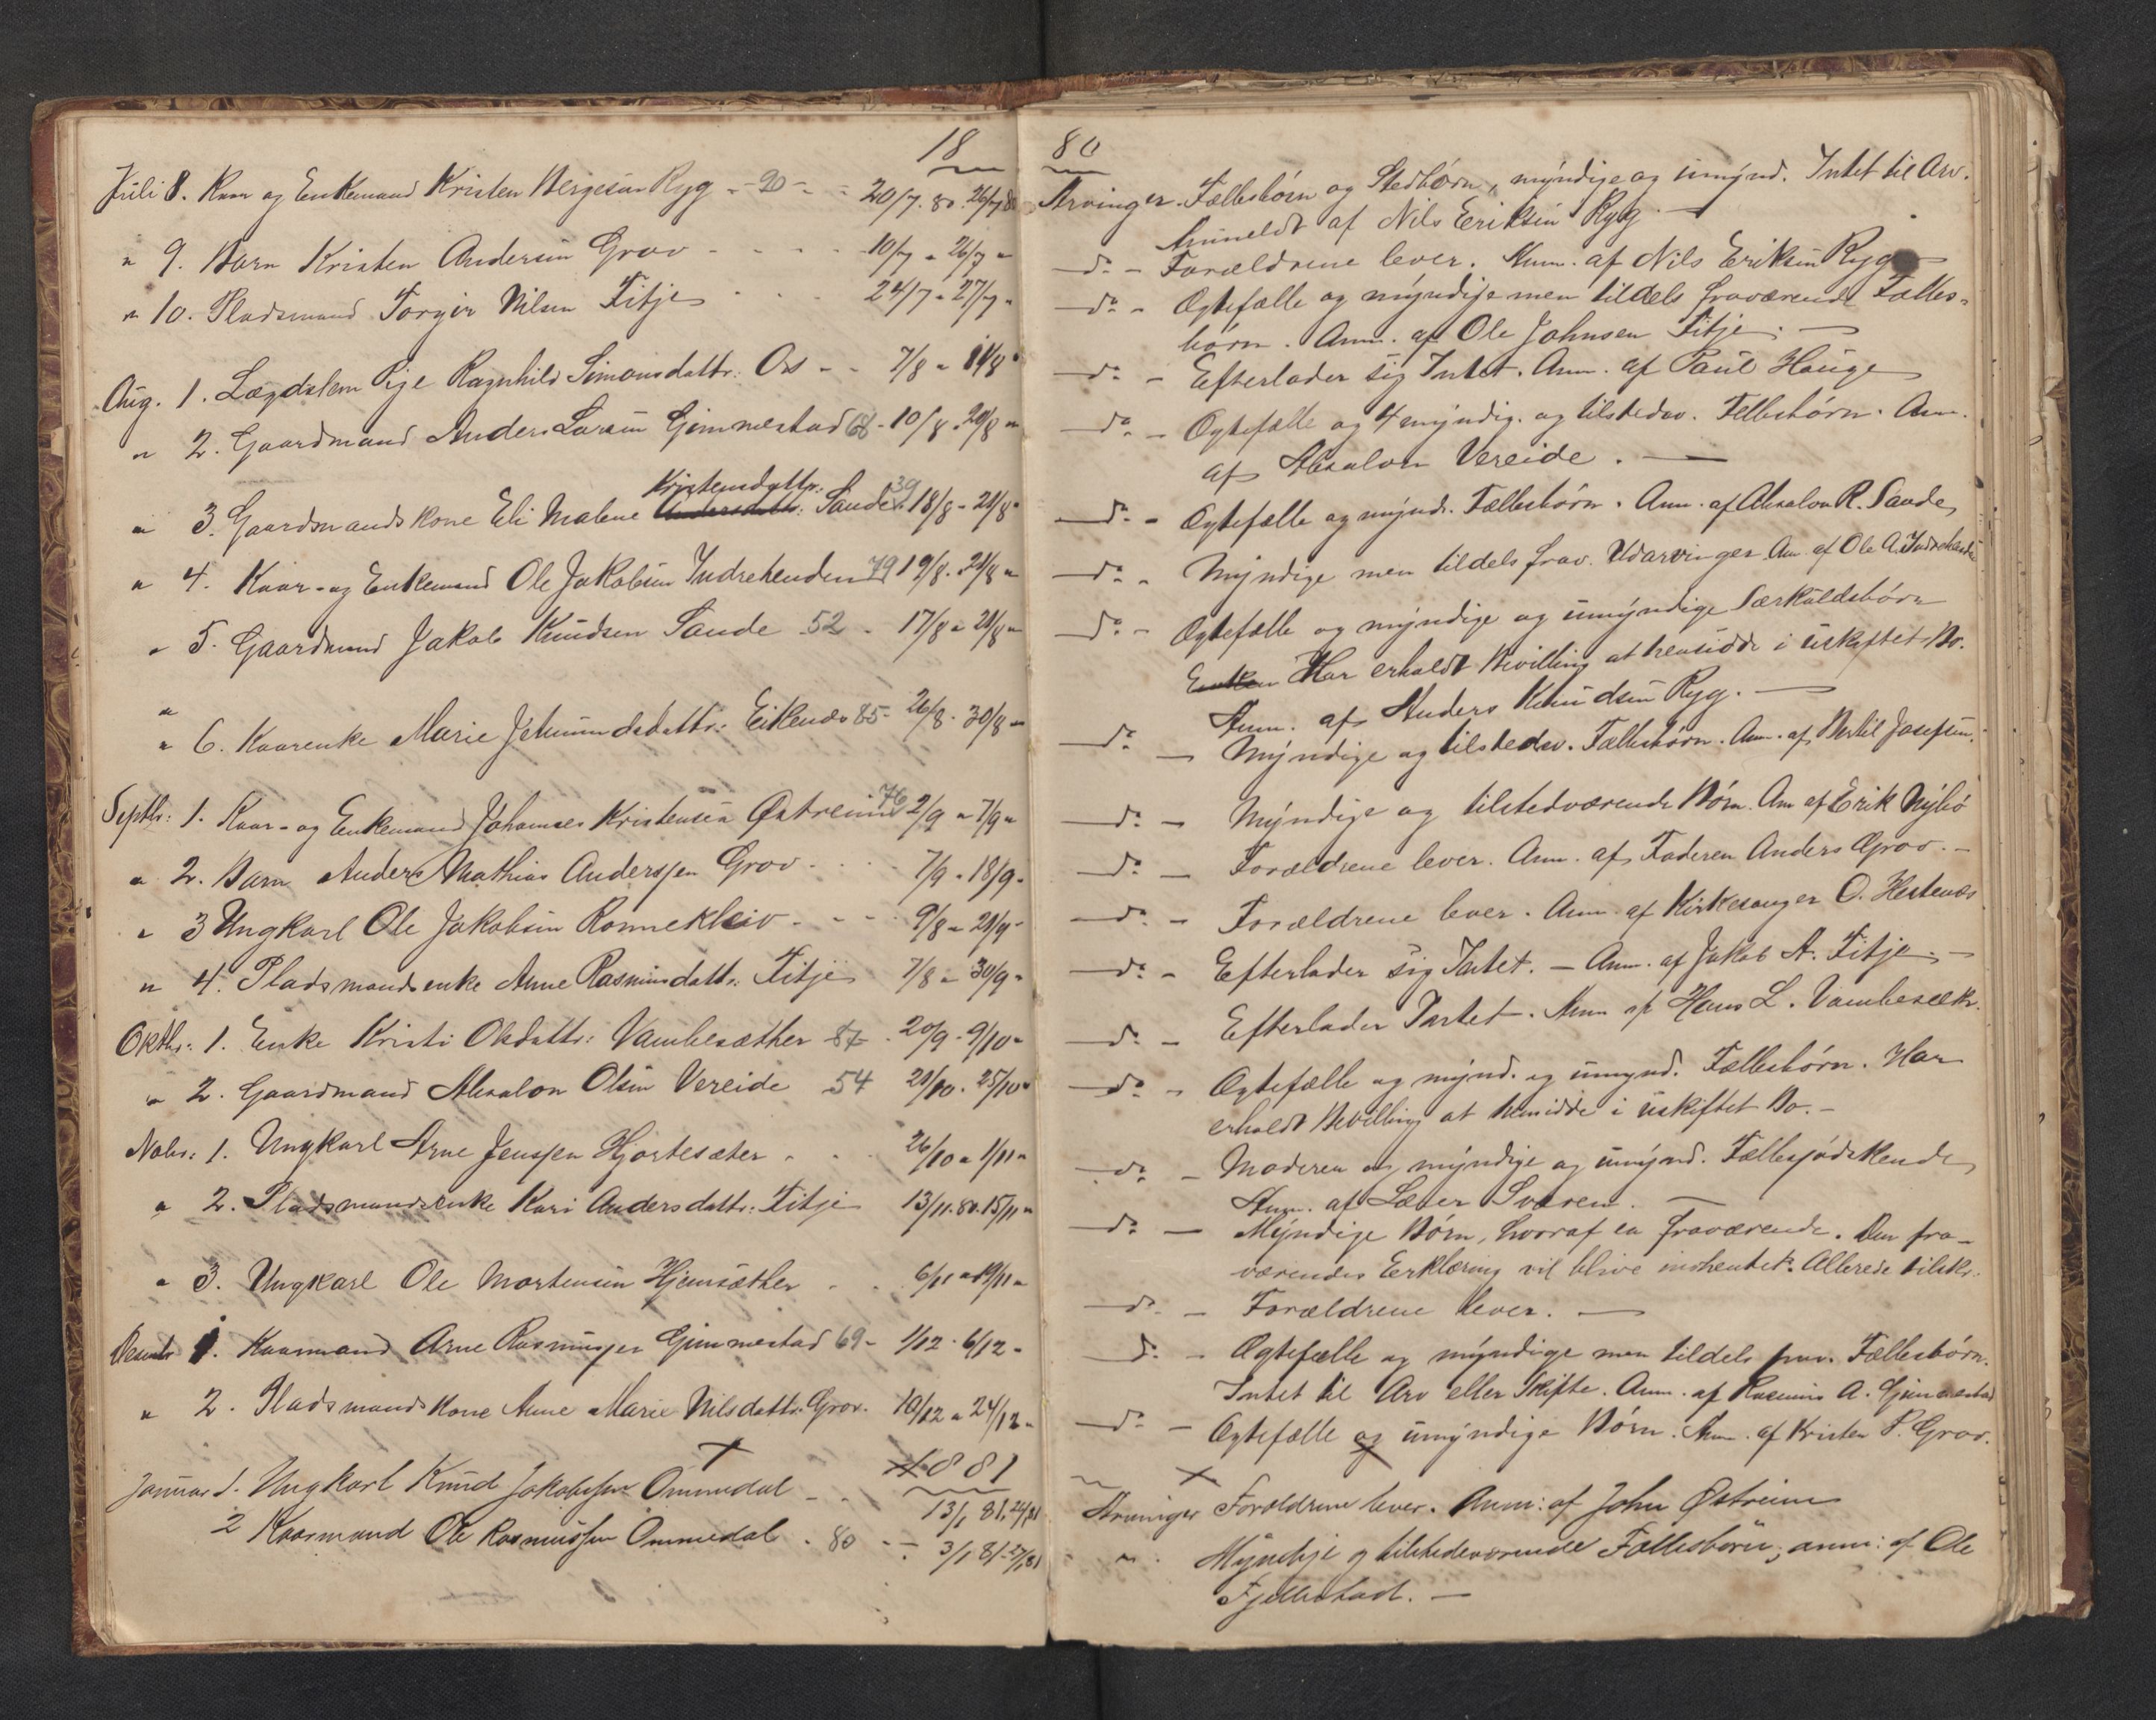 18
Juli 8. Kaar og Enkemand Kristen Bergesen Ryg - 90 - - 20/7. 80. 26/7 80
" 9. Barn Kristen Andersen Grov - - - - 10/7 " 26/7 "
" 10. Pladsmand Torger Nilsen Fitje - - - 24/7 " 27/7 "
Aug. 1. Lægdslem Pige Ragnhild Simonsdattr: Os - - 7/8 " 14/8 "
" 2. Gaardmand Anders Larsen Gjemmestad 68 - 10/8 . 20/8 "
Kristensdattr: 39
" 3. Gaardmandskone Eli Malene Andersdattr: Sande. 18/8 - 21/8 "
" 4. Kaar- og Enkemand Ole Jakobsen Indrehenden 79 19/8 . 21/8 "
" 5. Gaardmand Jakob Knudsen Sande 52 - 17/8 " 21/8 "
" 6. Kaarenke Marie Jetmundsdattr: Eikenæs 85 - 26/8 . 30/8 "
Septbr: 1. Kaar- og Enkemand Johannes Kristensen Østreim 76 2/9 " 7/9 "
" 2. Barn Anders Mathias Anderssen Grov - - - 7/9 . 18/9 -
" 3 Ungkarl Ole Jakobsen Ronnekleiv - - - 9/8 " 21/9 -
" 4. Pladsmandsenke Anne Rasmusdattr: Fitje 7/8 " 30/9 "
Oktbr: 1. Enke Kristi Olsdattr: Vambesæther 87 . 20/9 . 9/10 "
" 2. Gaardmand Absalon Olsen Vereide 54 21/10 . 25/10 "
Nobr: 1. Ungkarl Arne Jenssen Hjortesæter - - - 26/10 " 1/11 "
" 2. Pladsmandsenke Kari Andersdattr: Fitje 13/11. 80. 15/11 "
" 3. Ungkarl Ole Mortensen Hjemsæther - - 6/11 " 19/11 "
Decmbr 1. Kaarmand Arne Rasmussen Gjemmestad 69 - 1/12 . 6/12 -
" 2. Pladsmandskone Anne Marie Nilsdattr. Grov. 10/12 " 24/12 -
1881
Januar 1. Ungkarl Knud Jakobssen Ommedal - - 13/1 81. 24/1 81
2 Kaarmand Ole Rasmussen Ommedal . 80 - - 3/1 81 - 27/1 81
80
Arvinger. Fællesbørn og Stedbørn, myndige og umynd. Intet til Arv.
Anmeldt af Nils Eriksen Ryg. —
do. - Forældrene lever. Anm. af Nils Eriksen Ryg
do. - Ægtefælle og myndige men tildels fraværende Fælles-
børn. Anm. af Ole Johnsen Fitje. —
do. - Efterlader sig Intet. Anm. af Paul Hauge
do. - Ægtefælle og 4 myndig. og tilstedev. Fellesbørn. Anm.
af Absalon Vereide. —
do. - Ægtefælle og mynd. Fællesbørn. Anm. af Absalon R. Sande
do. - Myndige men tildels frav. Udarvinger An. af Ole A. Indrehenden
do. - Ægtefælle og myndige og umyndige Særkuldsbørn
Enken Har erholdt Bevilling at hensidde i uskiftet Bo.
Anm. af Anders Knudsen Ryg. —
do. — Myndige og tilstedev. Fællesbørn. Anm. af Bertil Josefsen.
do. - Myndige og tilstedværende Børn. Anm af Erik Nybö
do. - Forældrene lever. Anm. af Faderen Anders Grov. -
do. - Forældrene lever. Anm. af Kirkesanger O. Hestenæs
do. - Efterlader sig Intet. - Anm. af Jakob A. Fitje. -
do. - Efterlader Intet. Anm af Hans L. Vambesæth.
do. - Ægtefælle og mynd. og umynd. Fællesbørn. Har
erholdt Bevilling at hensidde i uskiftet Bo. -
do. - Moderen og myndige og umynd. Fællessjødskende
Anm. af Sværen. —
do. — Myndige Børn, hvoraf en fraværende. Den fra-
værendes Erklæring vil blive indhentet. Allerede tilsk.
do. - Forældrene lever. —
do. - Ægtefælle og myndige men tildels frav. Fællesbørn.
Intet til Arv eller Skifte. Anm. af Rasmus A. Gjemmestad
do. - Ægtefælle og umyndige Børn. Anm. af Kristen P. Grov.
Arvinger Forældrene lever. Anm: af John Østreim
" . Myndige og tilstedeværende Fællesbörn; anm: af Ole
Fjellestad. —